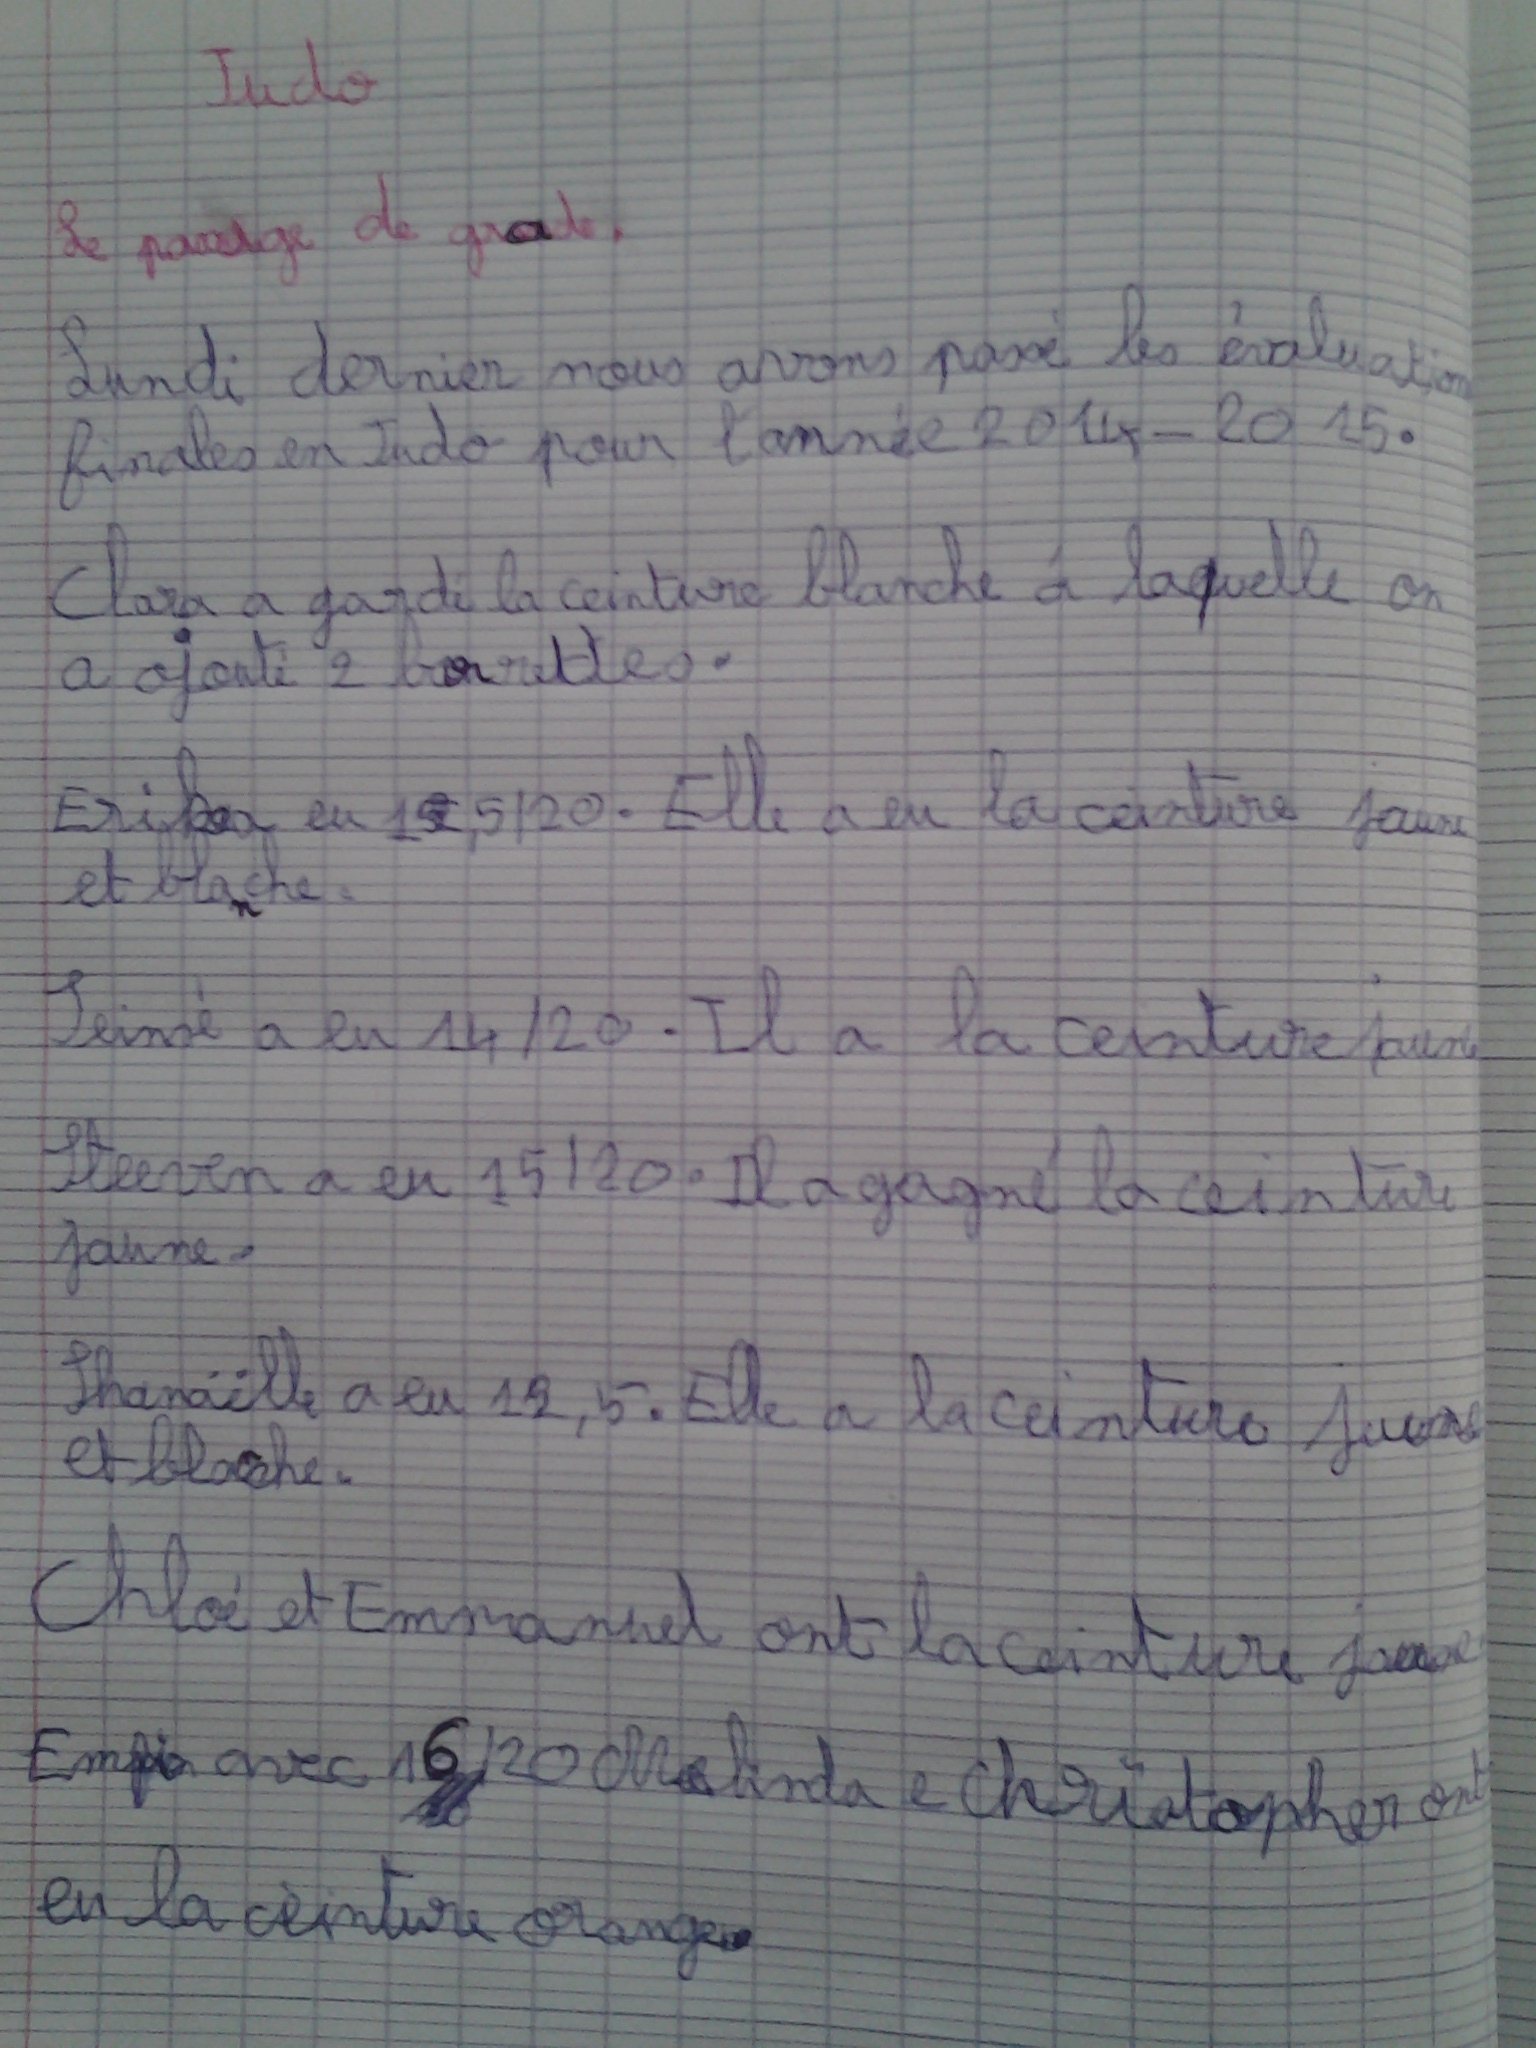 Judo
Le passage de grade.
Lundi dernier nous avons passé les évaluation
finales en Judo pour l'année 2014-2015.
Clara a gardé la ceinture blanche à laquelle on
a ajouté 2 barrettes.
Erika a eu 12,5/20. Elle a eu la ceinture jaune
et blanche.
Teimé a eu 14/20. Il a la ceinture jaune
Steeven a eu 15/20. Il a gagné la ceinture
jaune.
Shanaëlle a eu 12,5. Elle a la ceinture jaune
et blache.
Chloé et Emmanuel ont la ceinture jaune
Emfin avec 16/20 Melinda e Christopher ont
eu la ceinture orange.